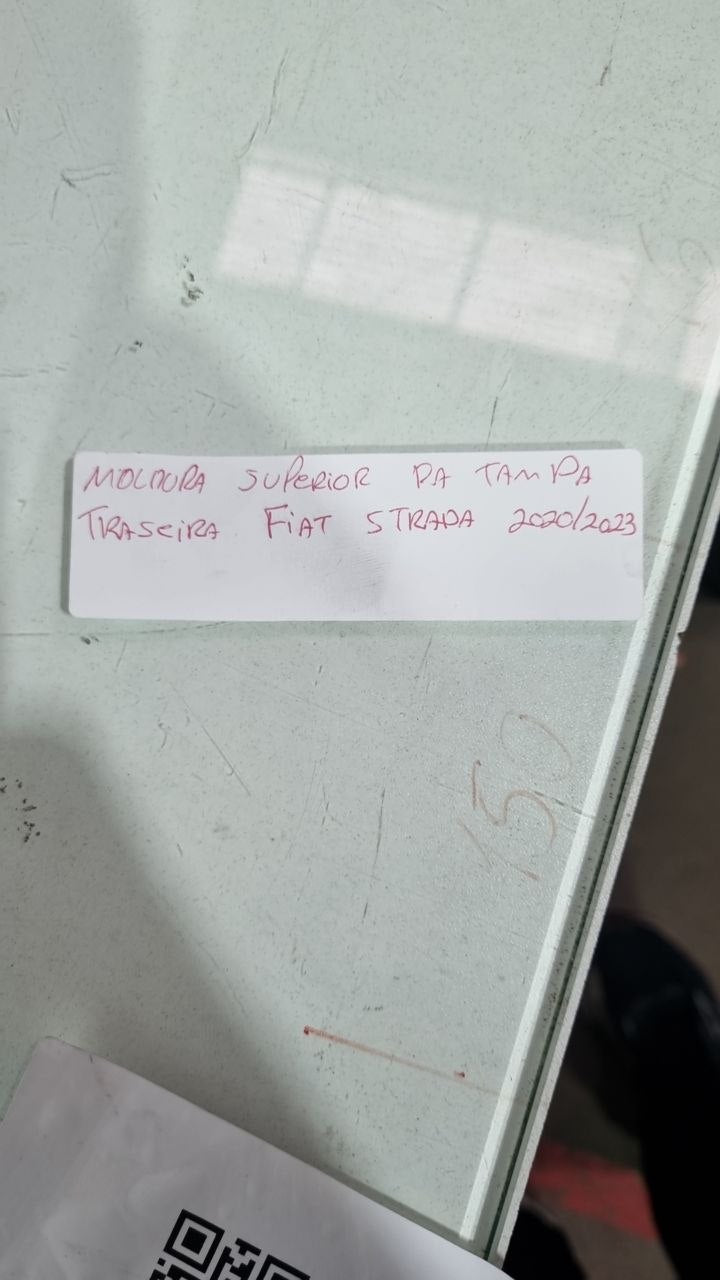 MOLDURA SUPERIOR DA TAMPA
TRASEIRA FIAT STRADA 2020/2023
150